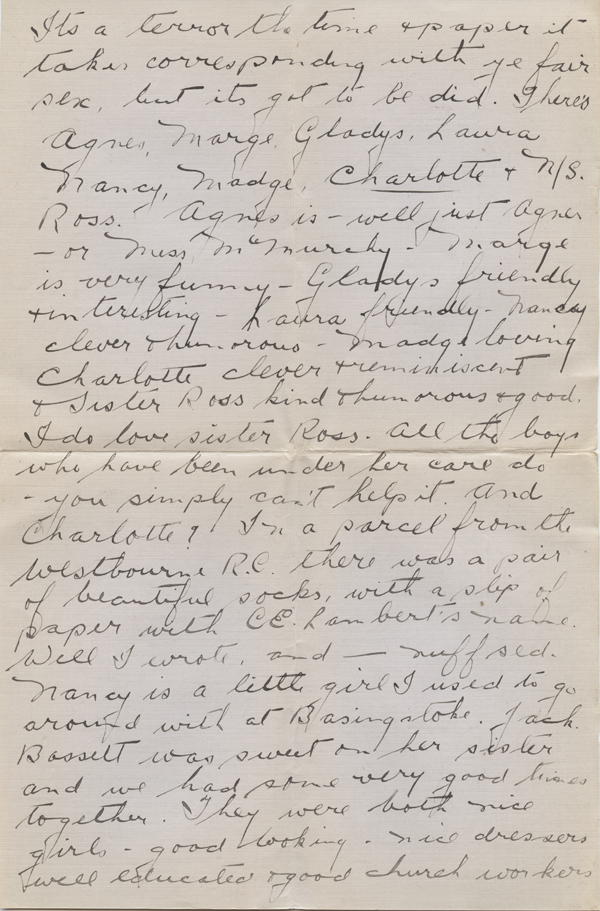 Its a terror the time & paper it
takes corresponding with ye fair
sex, but its got to be did. There's
Agnes, Marge, Gladys, Laura
Nancy, Madge, Charlotte & N/S.
Ross. Agnes is - well just Agnes
- or Miss McMurchy - Marge
is very funny - Gladys friendly
& interesting - Laura friendly - Nancy
clever & humorous - Madge loving
Charlotte clever & reminiscent
& Sister Ross kind & humorous & good.
I do love sister Ross. All the boys
who have been under her care do
- you simply can't help it. And
Charlotte? In a parcel from the
Westbourne R.C. there was a pair
of beautiful socks, with a slip of
paper with C.E. Lambert's name.
Well I wrote, and — nuff sed.
Nancy is a little girl I used to go
around with at Basingstoke. Jack
Bassett was sweet on her sister
and we had some very good times
together. They were both nice
girls - good looking - nice dressers
& well educated & good church workers